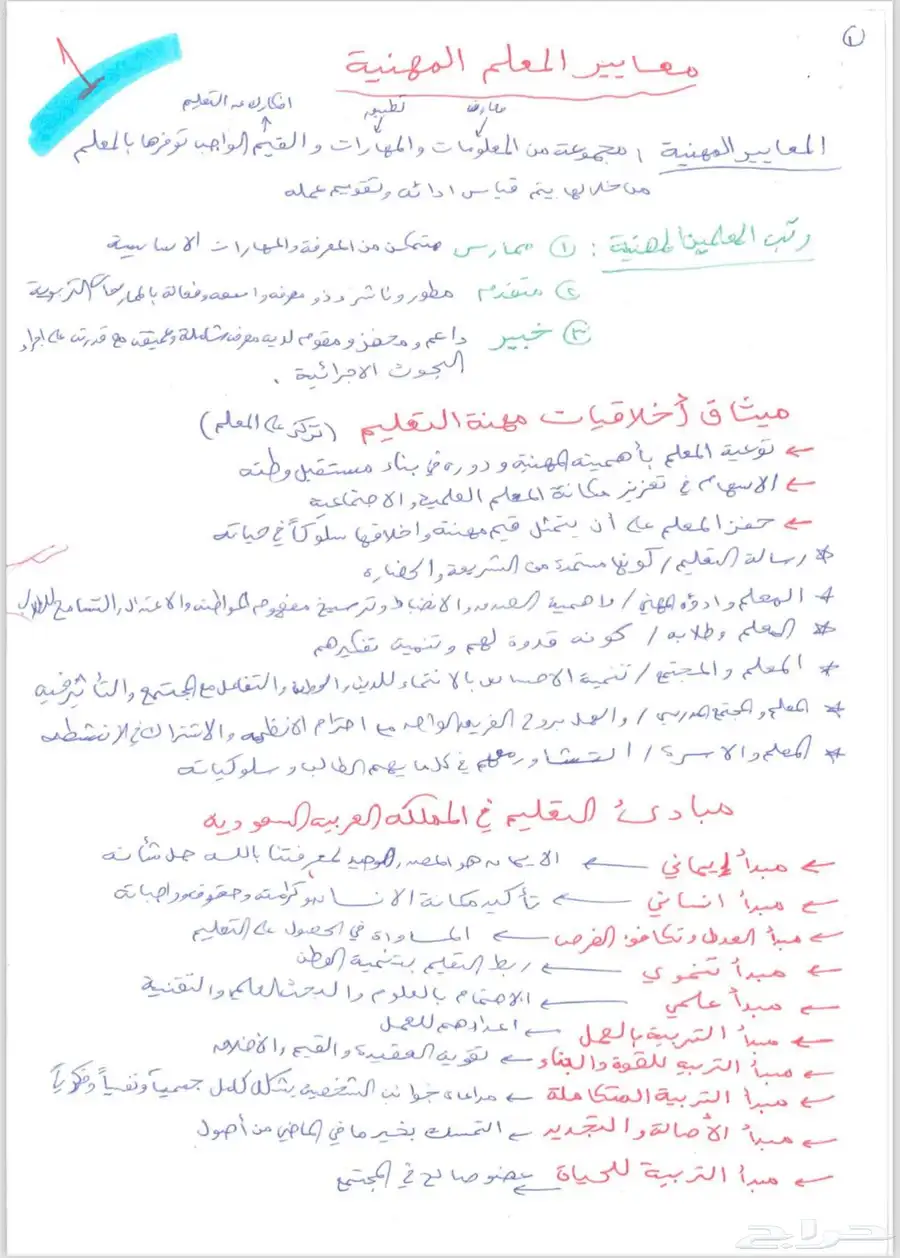 ①
١
معايير المعلم المهنية
معارف تطبيق افكارك عن التعليم
المعايير المهنية : مجموعة من المعلومات والمهارات والقيم الواجب توفرها بالمعلم
من خلالها يتم قياس ادائه وتقويم عمله
رتب المعلمين المهنية : ① ممارس متمكن من المعرفة والمهارات الاساسية
② متقدم مطور وناشر وذو معرفه واسعه وفعالة بالممارسات التربوية
③ خبير داعم ومحفز ومقوم لديه معرفه شاملة وعميقه مع قدرته على اجراء
البحوث الاجرائية .
ميثاق أخلاقيات مهنة التعليم (تركز على المعلم)
← توعية المعلم بأهميته المهنية ودوره في بناء مستقبل وطنه
← الاسهام في تعزيز مكانة المعلم العلمية والاجتماعية
← حفز المعلم على أن يتمثل قيم مهنته واخلاقها سلوكاً في حياته
* رسالة التعليم / كونها مستمدة من الشريعة والحضاره
* المعلم وادؤه المهني / اهمية الانضباط وترسيخ مفهوم المواطنه والاعتدال والتسامح للطلاب
* المعلم وطلابه / كونه قدوة لهم وتنمية تفكيرهم
* المعلم والمجتمع / تنمية الاحساس بالانتماء للدين والوطن والتفاعل مع المجتمع والتأثير فيه
* المعلم والمجتمع المدرسي / والعمل بروح الفريق الواحد مع احترام الانظمه والاشتراك في الانشطه
* المعلم والاسرة / التشاور معهم في كل ما يهم الطالب وسلوكياته
مبادئ التعليم في المملكه العربيه السعوديه
← مبدأ إيماني ← الايمان هو المصدر الوحيد لمعرفتنا بالله جل شأنه
← مبدأ انساني ← تأكيد مكانة الانسان وكرامته وحقوقه وواجباته
← مبدأ العدل وتكافؤ الفرص ← المساواة في الحصول على التعليم
← مبدأ تنموي ← ربط التعليم بتنمية الوطن
← مبدأ علمي ← الاهتمام بالعلوم والبحث العلمي والتقنية
← مبدأ التربية بالعمل ← اعدادهم للعمل
← مبدأ التربيه للقوة والبناء ← تقوية العقيدة والقيم والأخلاق
← مبدأ التربية المتكاملة ← مراعاة جوانب الشخصيه بشكل كامل جسمياً ونفسياً وفكرياً
← مبدأ الأصالة والتجديد ← التمسك بخير ما في الماضي من أصول
← مبدأ التربية للحياة ← عضو صالح في المجتمع
حراج